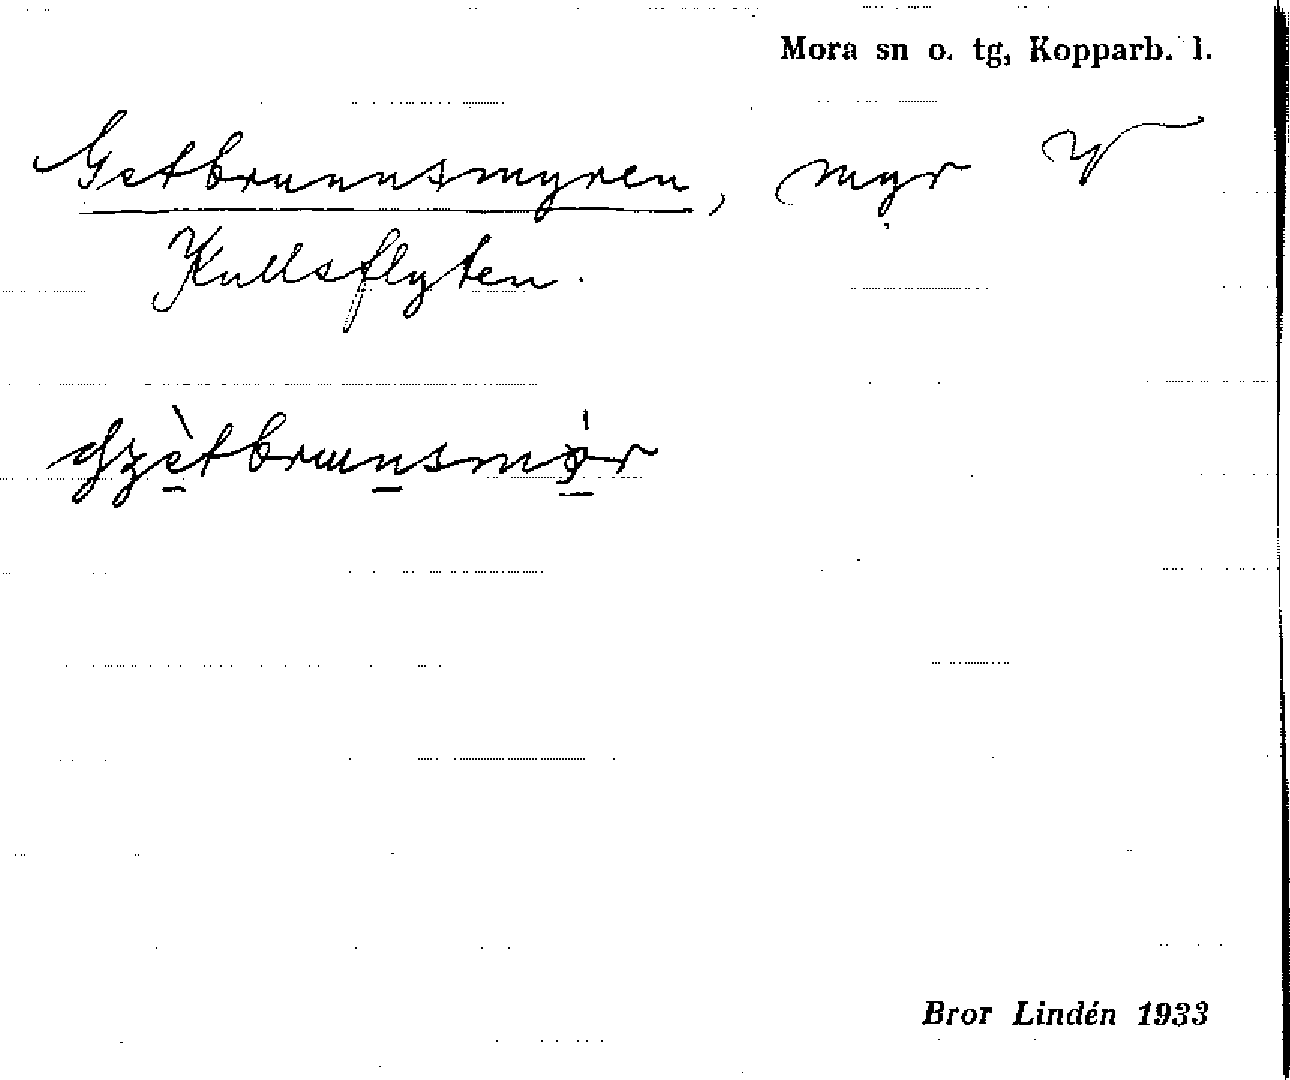 Mora sn o. tg, Kopparb. l.
Getbrunnsmyren, myr
Kullsflyten.
Bror Lindén 1933